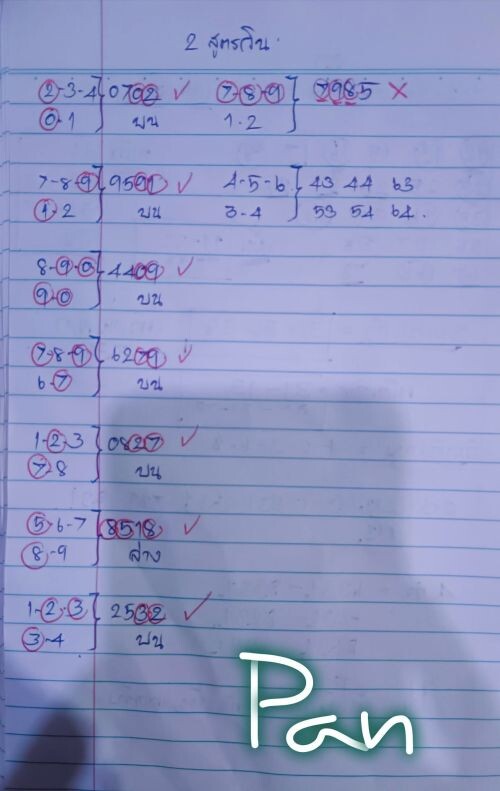 2 สูตรวิน.
2-3-4 0702 ✓ 7-8-9 7985 ✗
0-1 บน 1.2
7-8-9 9591 ✓ 4-5-6 43 44 63
1-2 บน 3-4 53 54 64.
8-9-0 4409 ✓
9-0 บน
7-8-9 6279 ✓
6-7 บน
1-2-3 0827 ✓
7-8 บน
5-6-7 8518 ✓
8-9 ล่าง
1-2-3 2532 ✓
3-4 บน
Pan